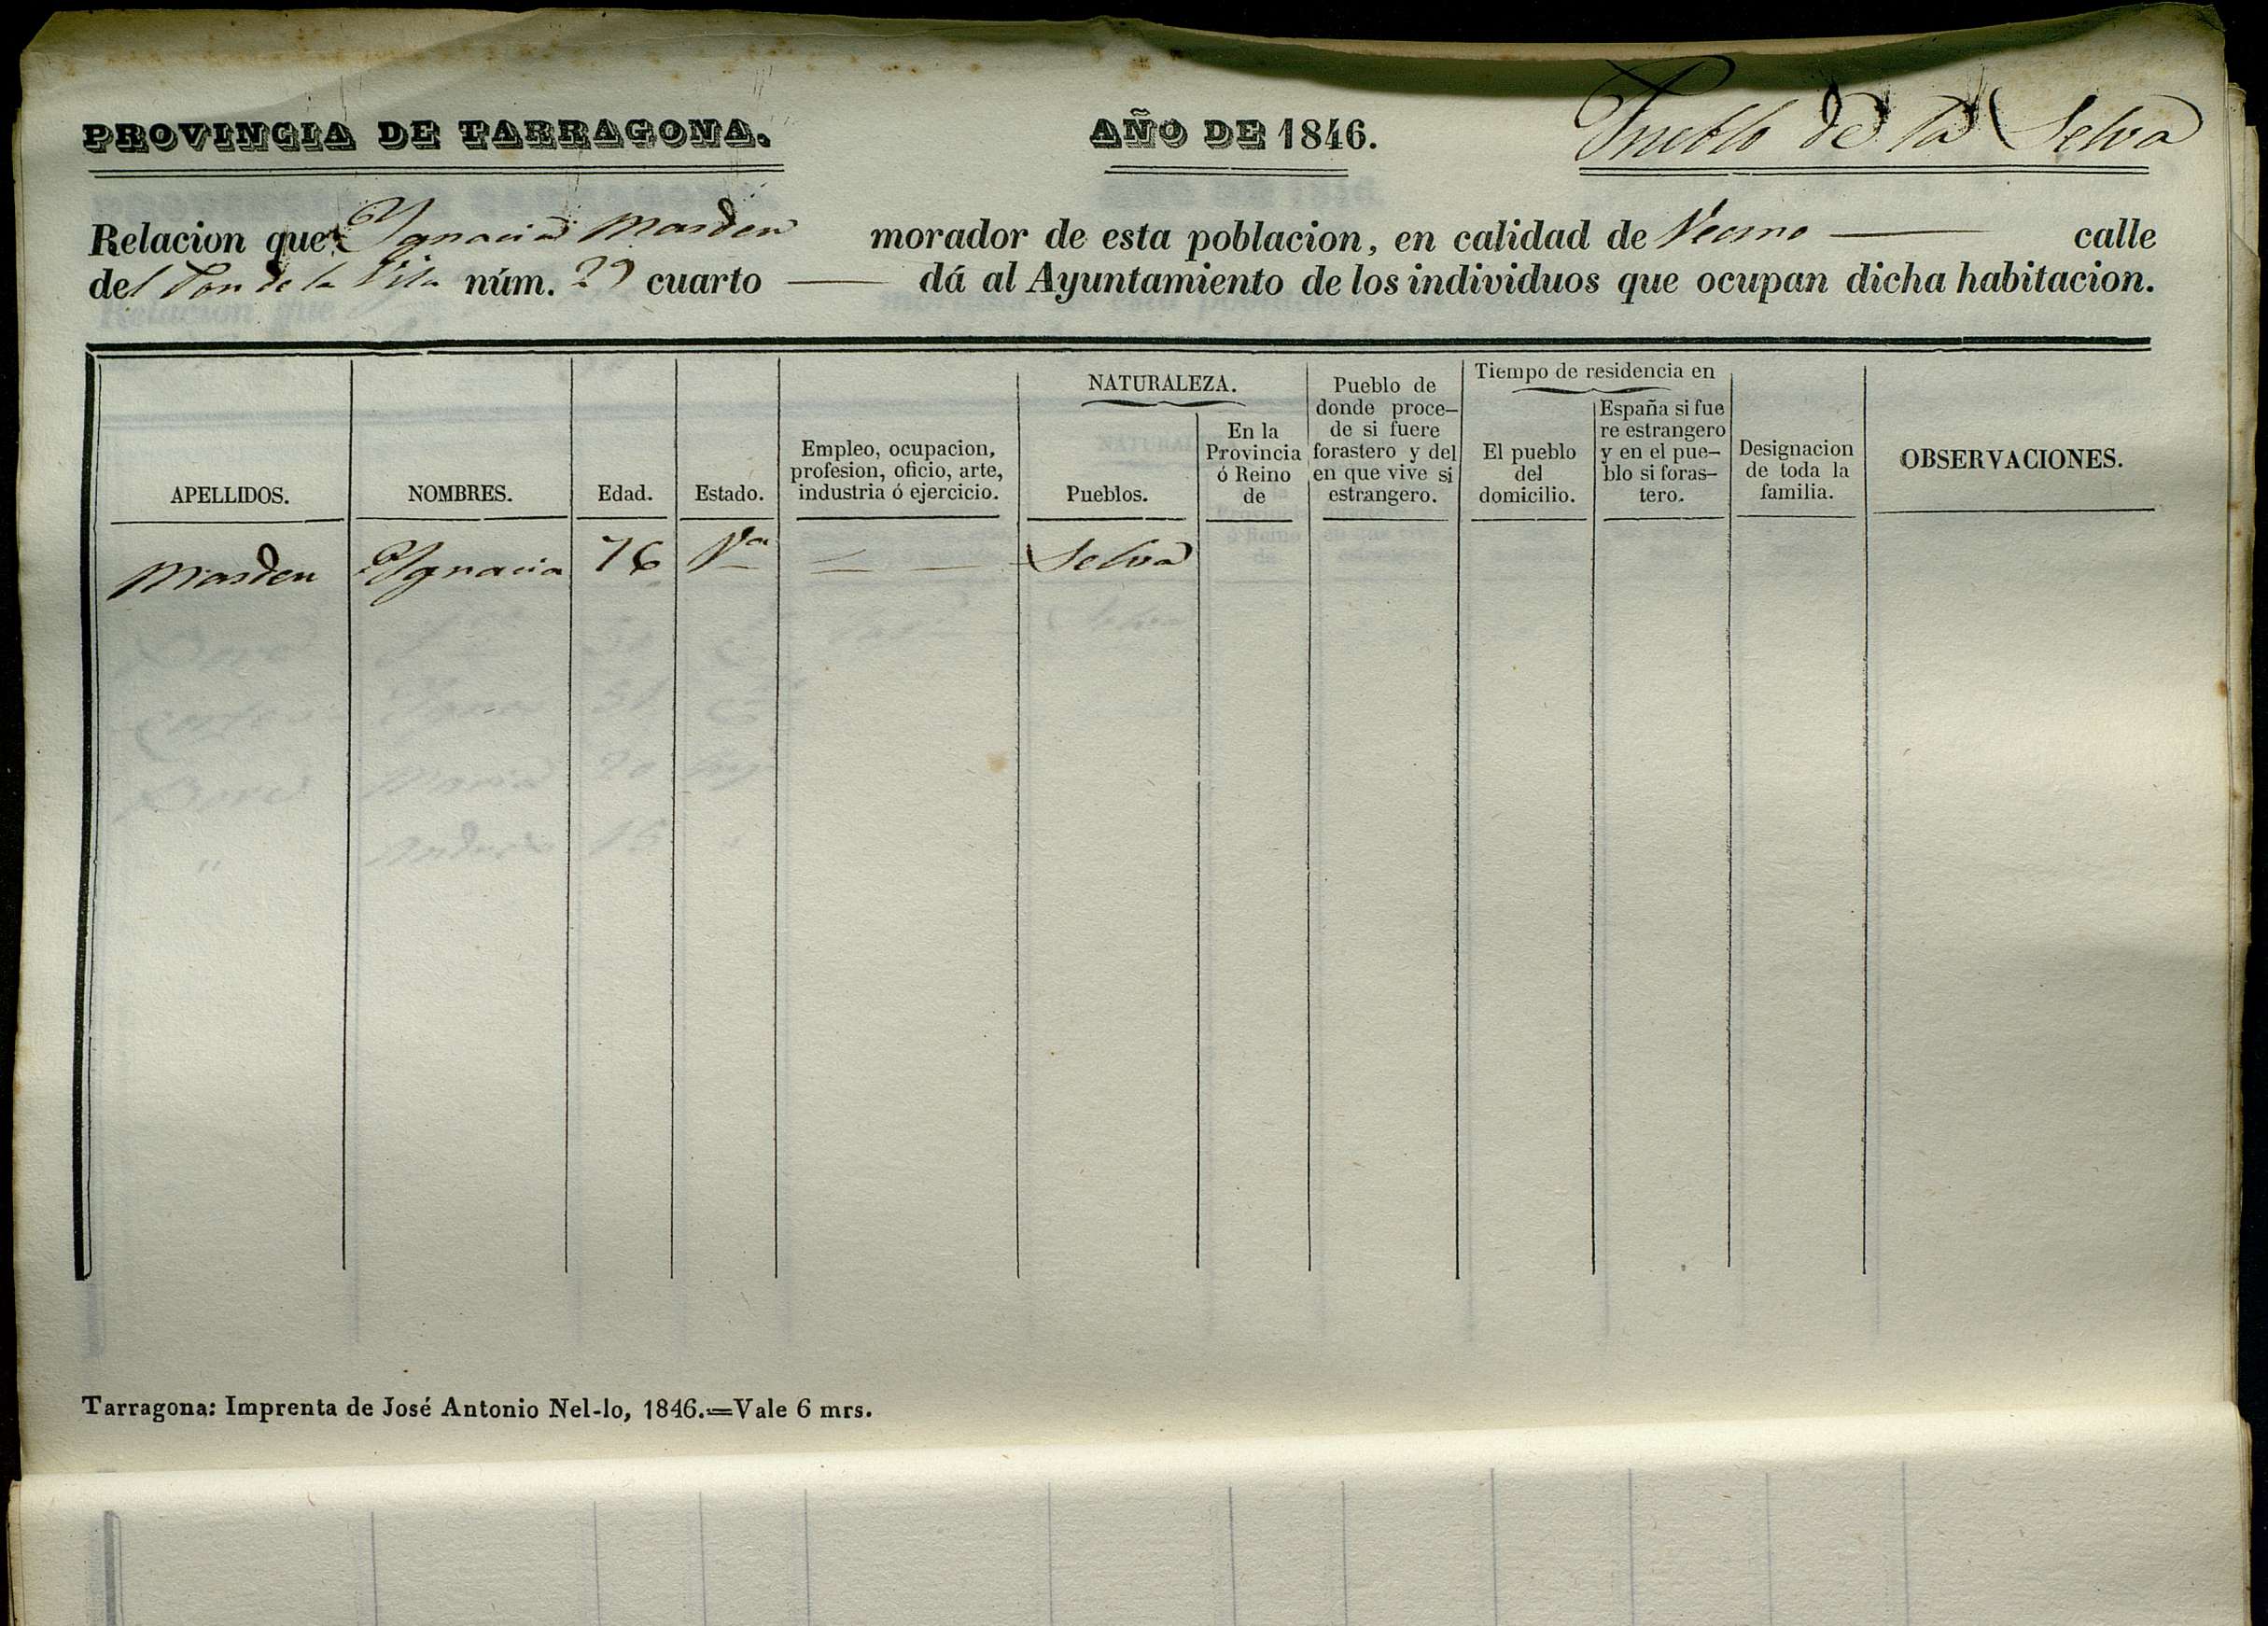 PROVINCIA DE TARRAGONA.
AÑO DE 1846.
Pueblo de la Selva
Relacion que Ygnacia Masdeu morador de esta poblacion, en calidad de Vecino — calle
del de la Vila núm. 29 cuarto — dá al Ayuntamiento de los individuos que ocupan dicha habitacion.
APELLIDOS.
NOMBRES.
Edad.
Estado.
Empleo, ocupacion,
profesion, oficio, arte,
industria ó ejercicio.
NATURALEZA.
Pueblos.
En la
Provincia
ó Reino
de
Pueblo de
donde proce-
de si fuere
forastero y del
en que vive si
estrangero.
Tiempo de residencia en
El pueblo
del
domicilio.
España si fue
re estrangero
y en el pue-
blo si foras-
tero.
Designacion
de toda la
familia.
OBSERVACIONES.
Masdeu Ygnacia 76 Va — — Selva
Tarragona: Imprenta de José Antonio Nel-lo, 1846.=Vale 6 mrs.